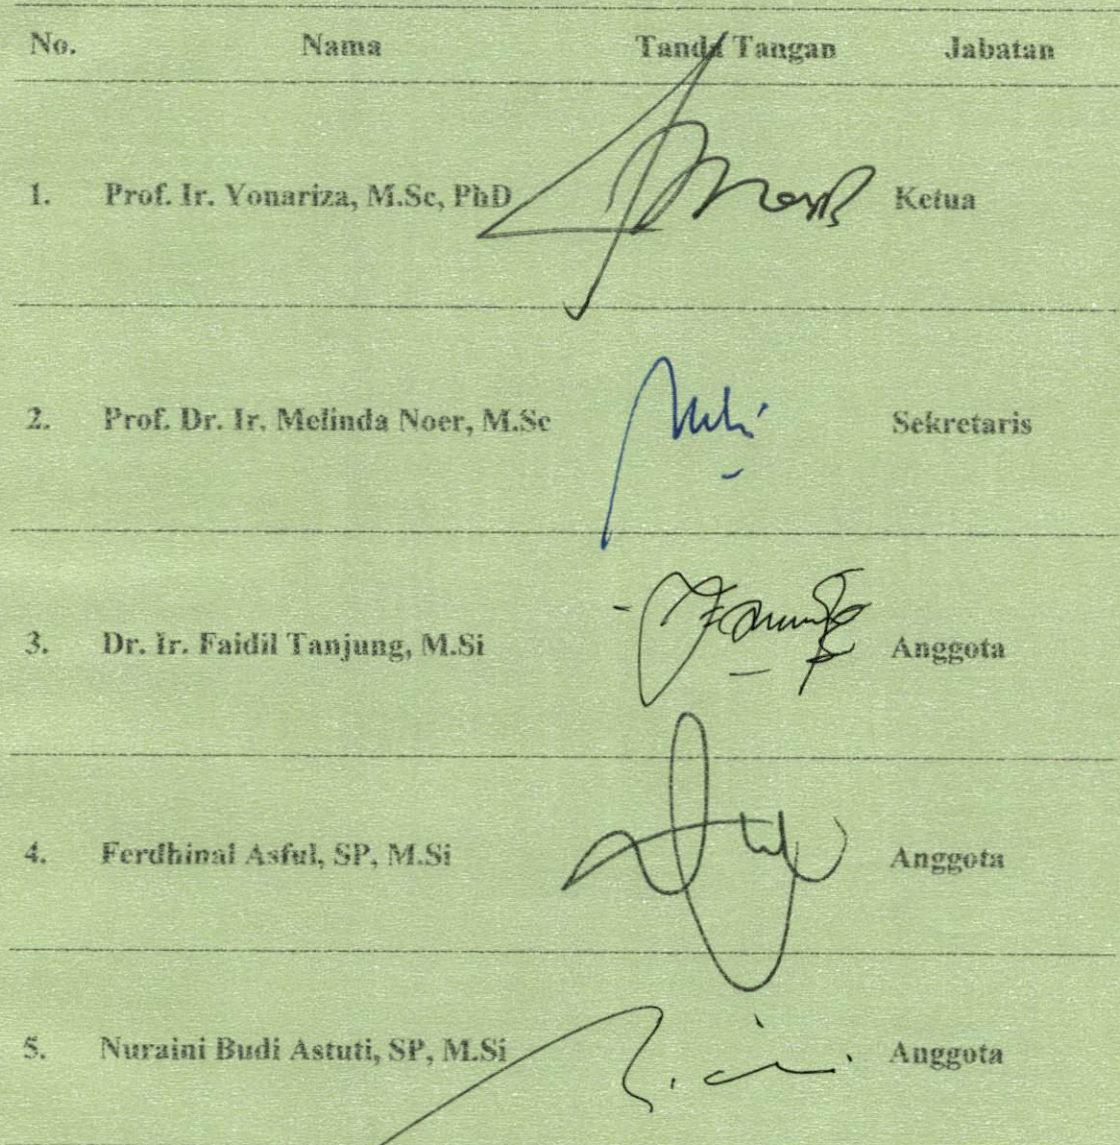 No. Nama Tanda Tangan Jabatan
1. Prof. Ir. Yonariza, M.Sc, PhD Ketua
2. Prof. Dr. Ir. Melinda Noer, M.Sc Sekretaris
3. Dr. Ir. Faidil Tanjung, M.Si Anggota
4. Ferdhinal Asful, SP, M.Si Anggota
5. Nuraini Budi Astuti, SP, M.Si Anggota